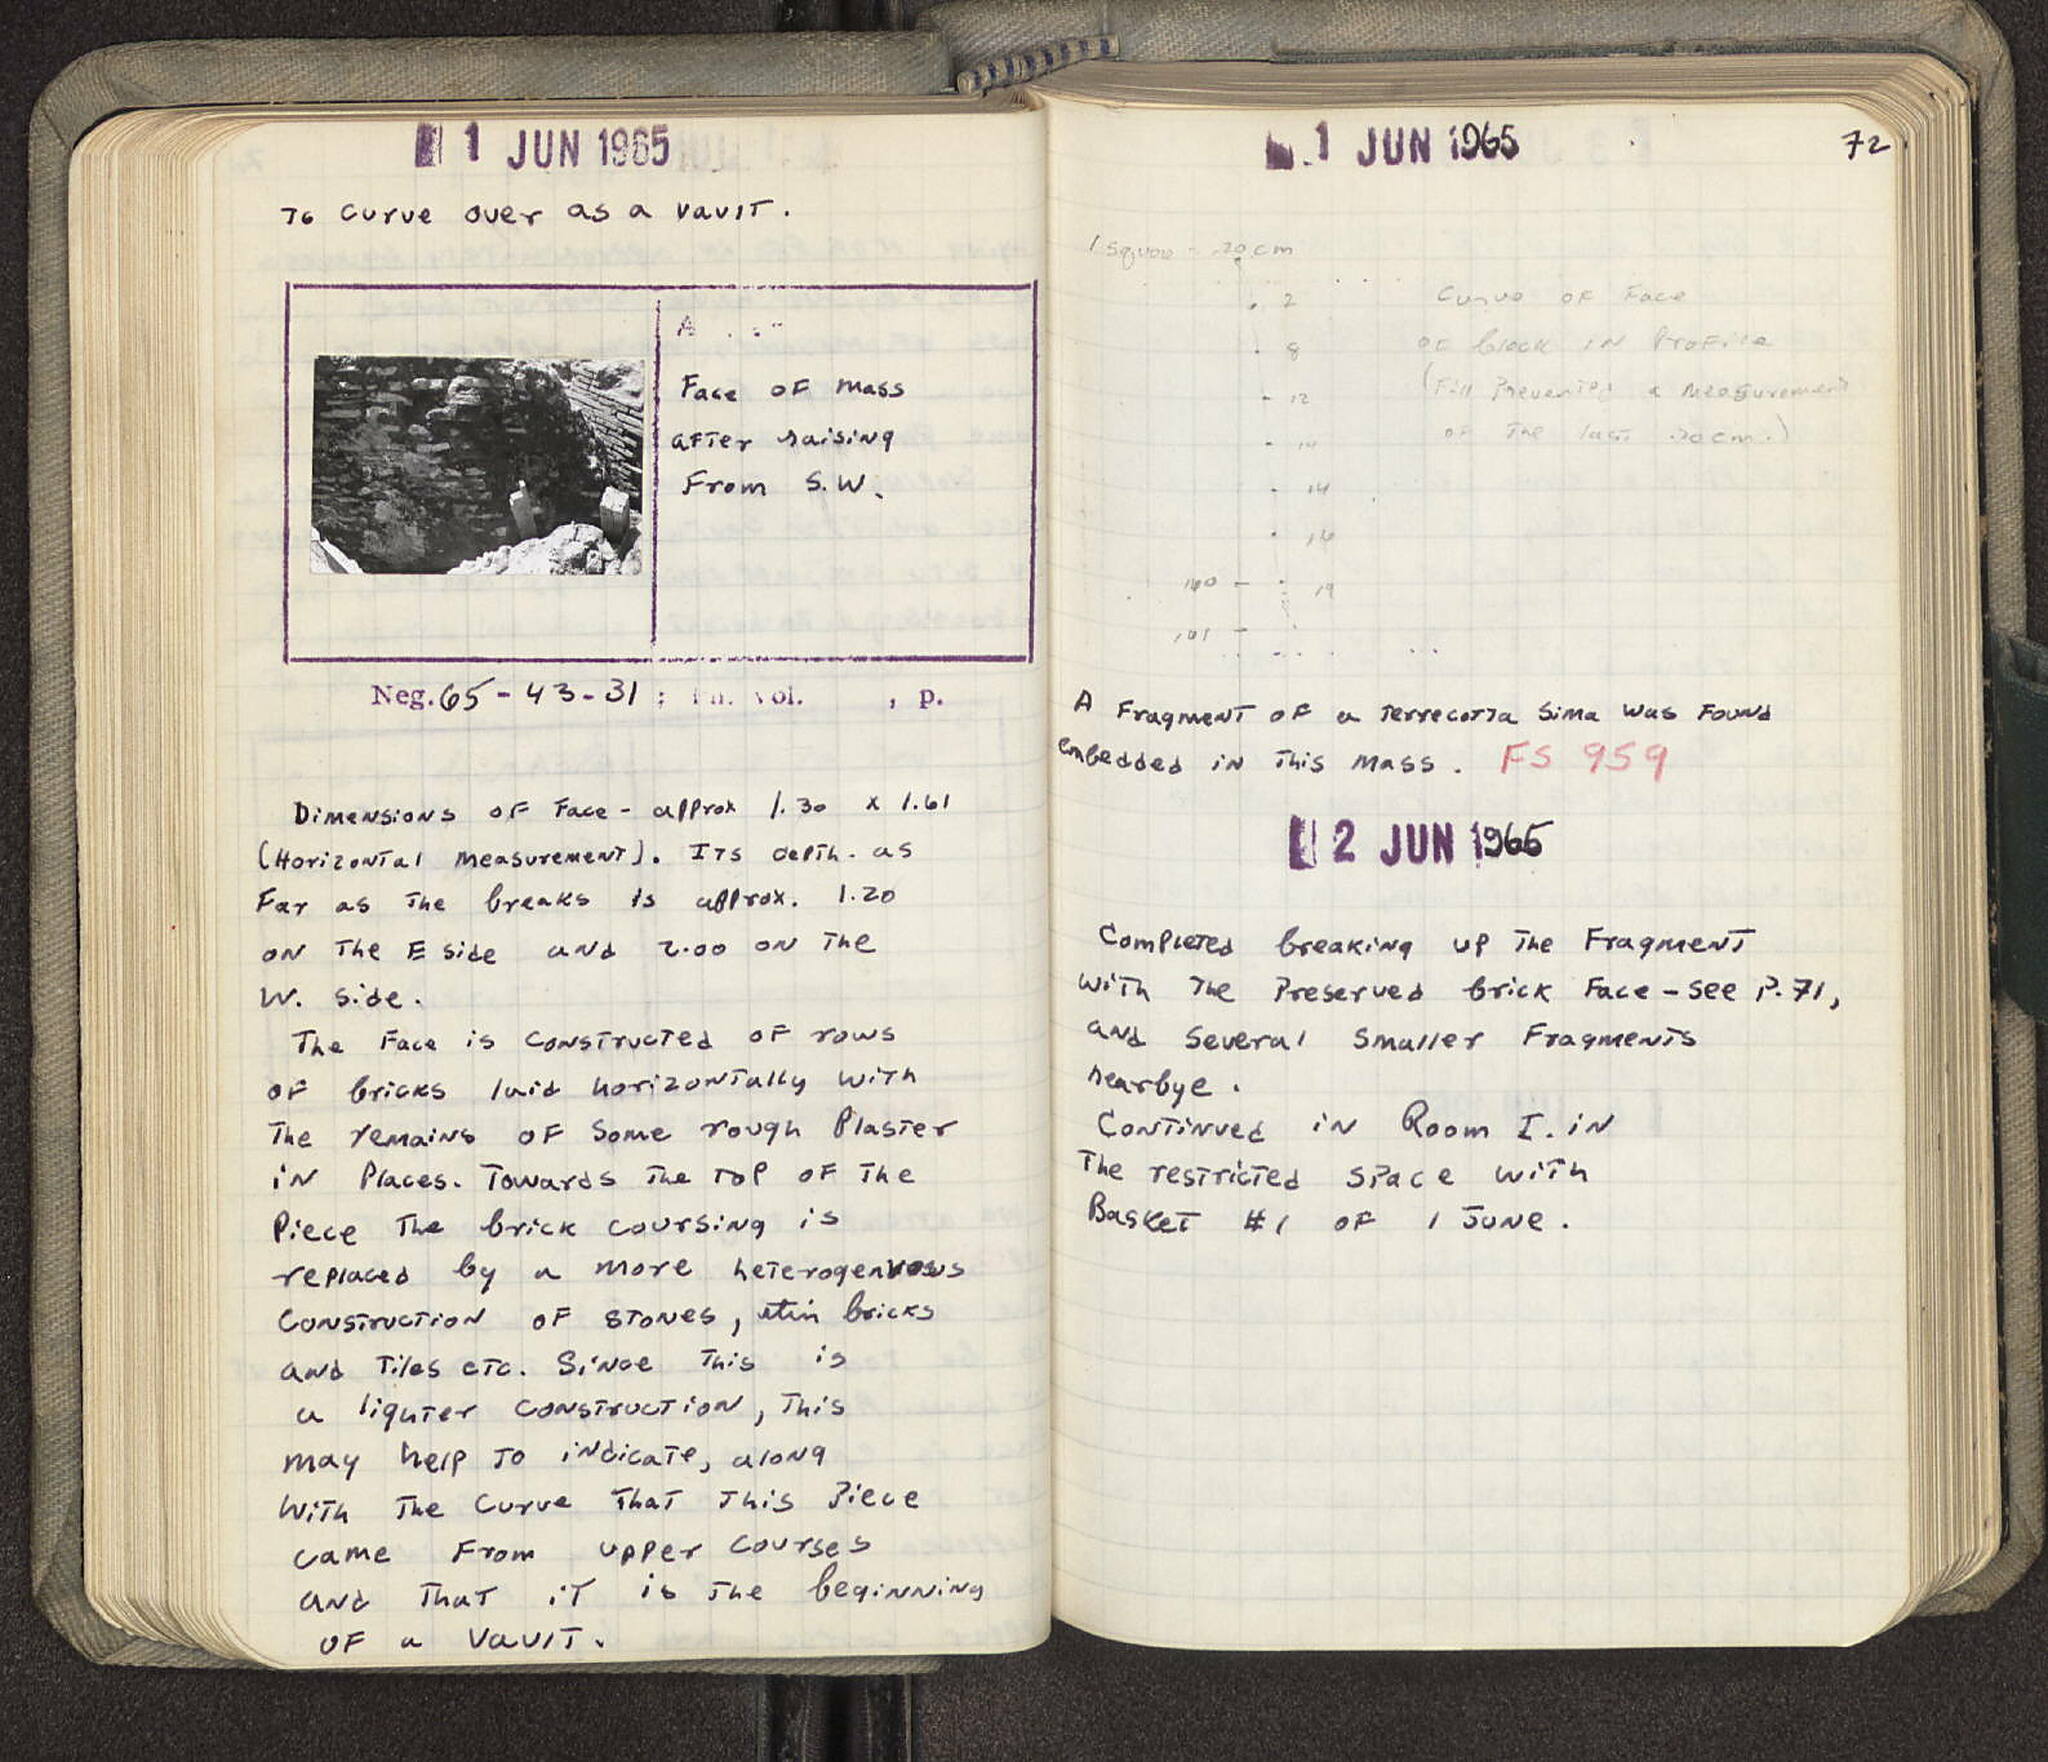 1 JUN 1965
To curve over as a vault.
Face of mass
after raising
From S.W.
Neg. 65-43-31 ; Ph. Vol. , p.
Dimensions of Face - approx 1.30 x 1.61
(Horizontal measurement). Its depth as
Far as the breaks is approx. 1.20
on the E side and 2.00 on the
W. side.
The Face is constructed of rows
of bricks laid horizontally with
the remains of some rough Plaster
in Places. Towards the top of the
Piece the brick coursing is
replaced by a more
construction of stones, bricks
and tiles etc. Since this is
a lighter construction, this
may help to indicate, along
with the curve that this Piece
came from upper courses
and that it is the beginning
of a vault.
1 JUN 1965
72
1 square - .20 cm
2
8
12
14
16
19
Curve of Face
of block in Profile
(Fill Prevented a measurement
of the last .20 cm.)
A Fragment of a terrecotta Sima was found
embedded in this mass. FS 959
2 JUN 1965
Completed breaking up the Fragment
with the Preserved brick Face - see P. 71,
and several smaller Fragments
nearbye.
Continued in Room I. in
the restricted space with
Basket #1 of 1 June.